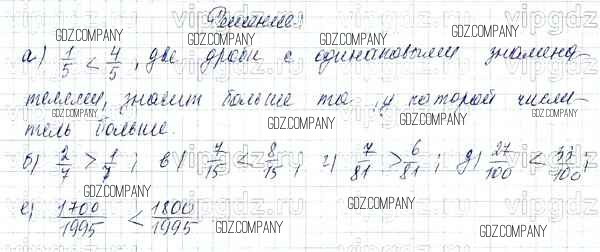 Решение:
а) 1/5 < 4/5, две дроби с одинаковыми знамена-
телями, значит больше та, у которой числи-
тель больше.
б) 2/7 > 1/7; в) 7/15 < 8/15; г) 7/81 > 6/81; д) 27/100 < 33/100;
е) 1700/1995 < 1800/1995
GDZ.COMPANY
GDZ.COMPANY
GDZ.COMPANY
GDZ.COMPANY
GDZ.COMPANY
GDZ.COMPANY
GDZ.COMPANY
GDZ.COMPANY
GDZ.COMPANY
GDZ.COMPANY
GDZ.COMPANY